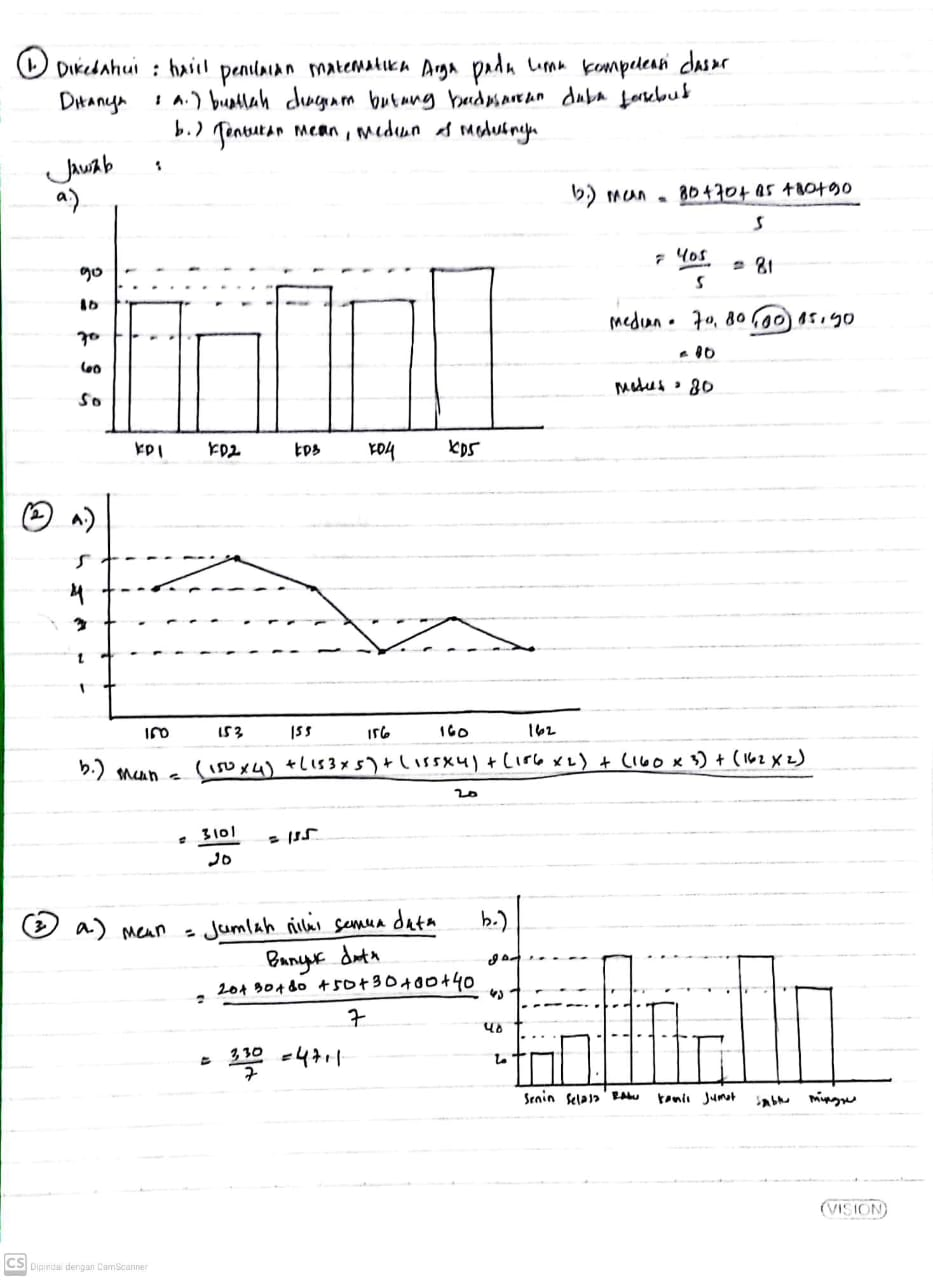 1. Diketahui : hasil penilaian matematika Arga pada lima kompetensi dasar
Ditanya : a.) buatlah diagram batang berdasarkan data tersebut
b.) Tentukan mean, median & modusnya
Jawab :
a.)
90
80
70
60
50
KD1 KD2 KD3 KD4 KD5
b.) mean = 80+70+85+80+90
5
= 405 = 81
5
median = 70, 80, 80, 85, 90
= 80
modus = 80
2 a.)
5
4
3
2
1
150 153 155 156 160 162
b.) mean = (150x4) + (153x5) + (155x4) + (156x2) + (160x3) + (162x2)
20
= 3101 = 155
20
3 a.) mean = Jumlah nilai semua data
Banyak data
= 20+30+80+50+30+80+40
7
= 330 = 47,1
7
b.)
80
60
40
20
Senin Selasa Rabu Kamis Jumat Sabtu Minggu
VISION
CS Dipindai dengan CamScanner